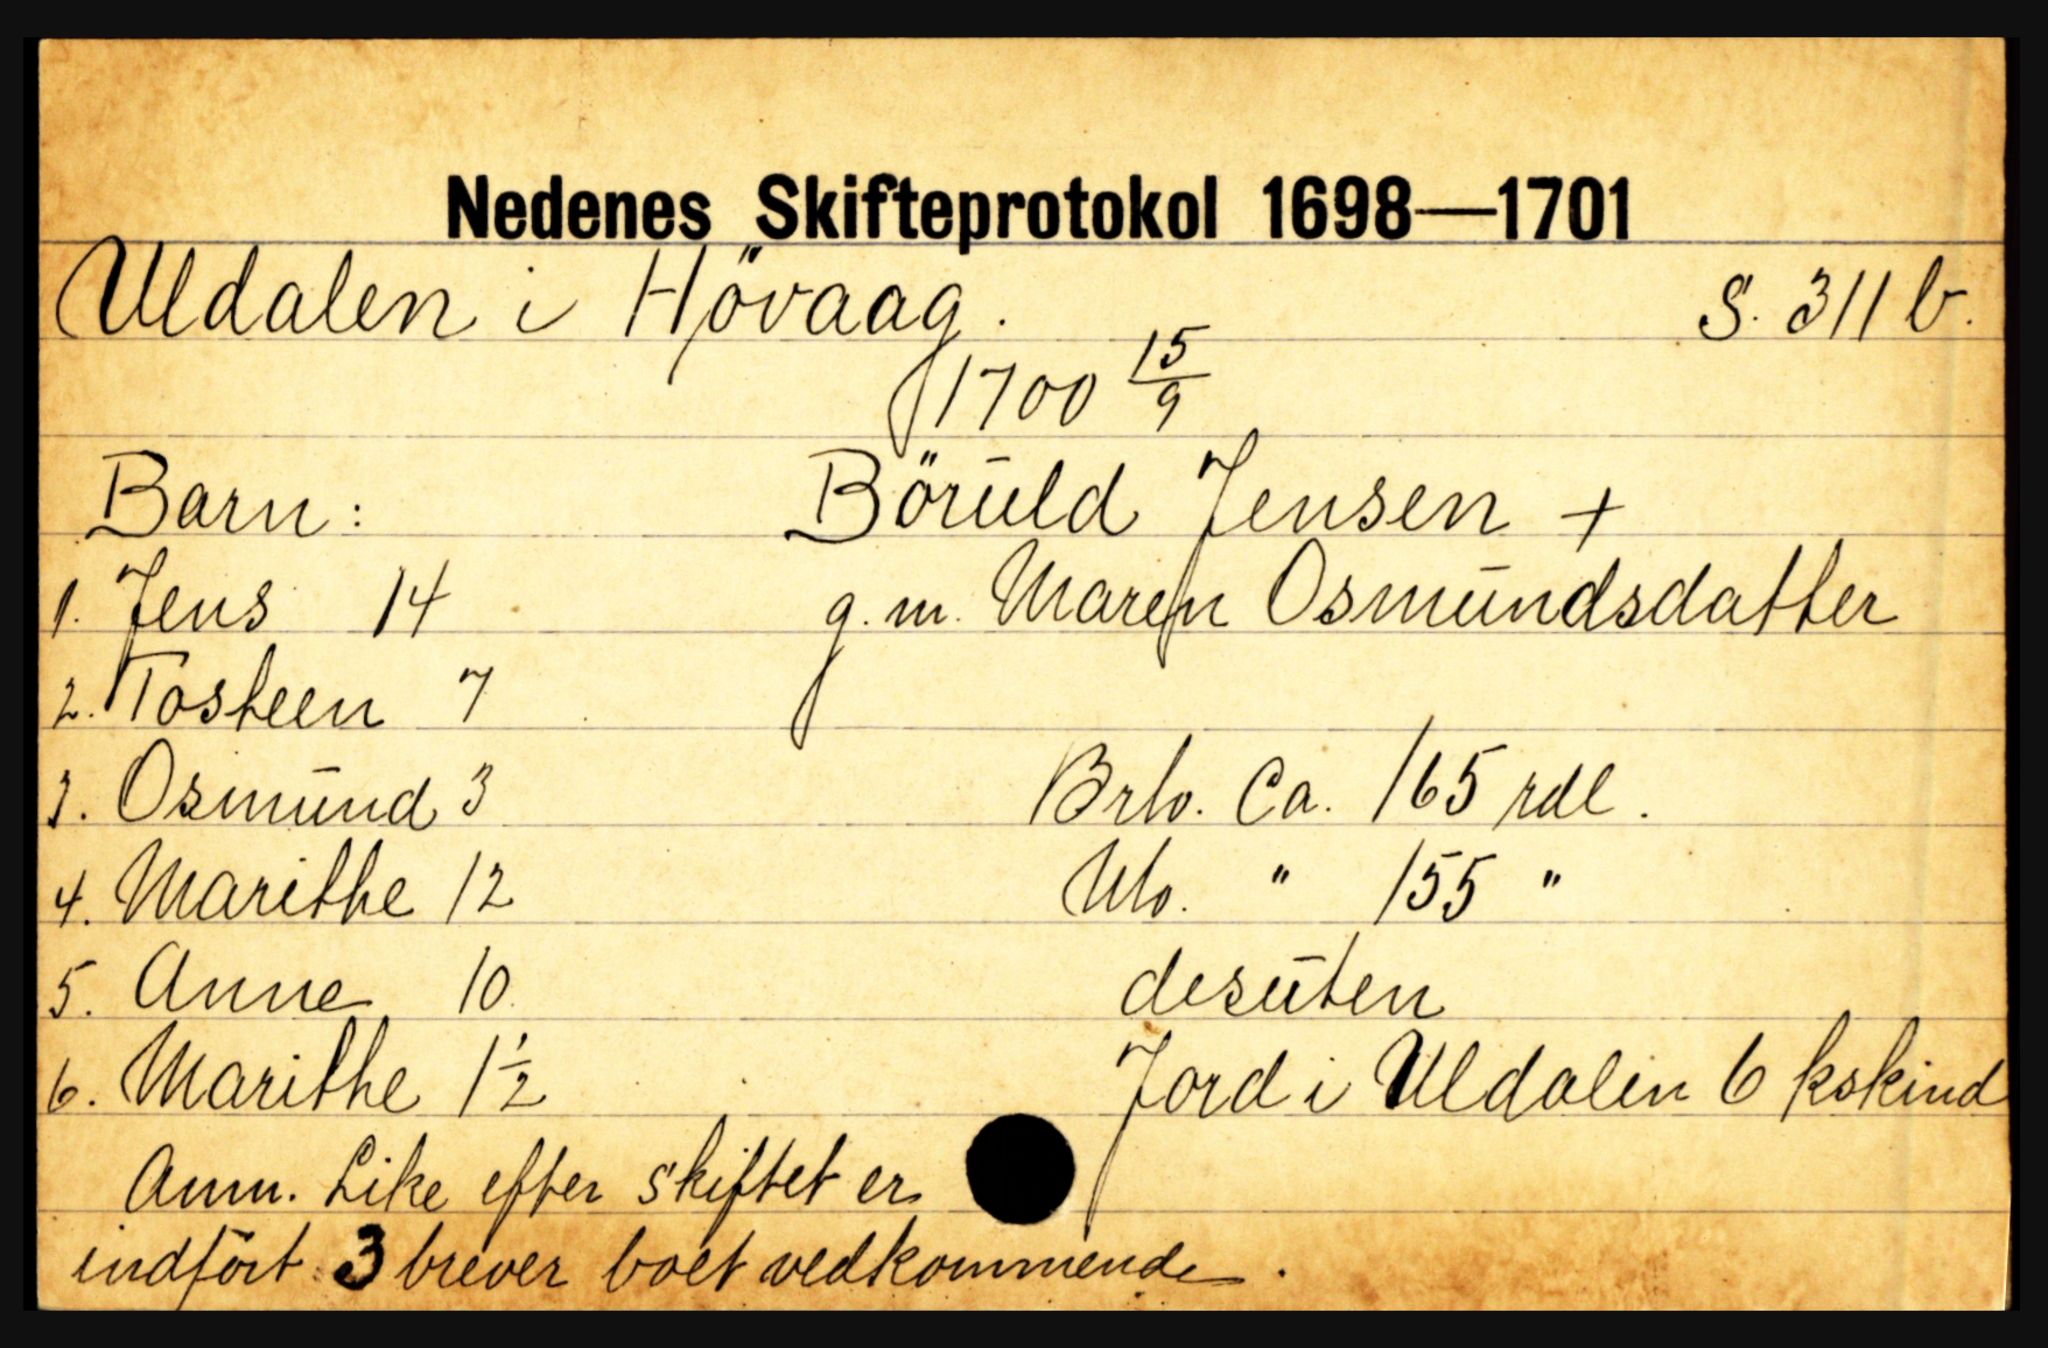 Nedenes Skifteprotokol 1698—1701
Uldalen i Hövaag. S. 311 b.
1700 15/9
Barn: Böruld Jensen +
1. Jens 14 g. m. Maren Osmundsdatter
2. Tosteen 7
3. Osmund 3 Brto. Ca. 165 rdl.
4. Marithe 12 Nto. " 155 "
5. Anne 10 desuten
6. Marithe 1 1/2 Jord i Uldalen 6 kskind
Anm. Like efter skiftet er
indfört 3 brever boet vedkommende.